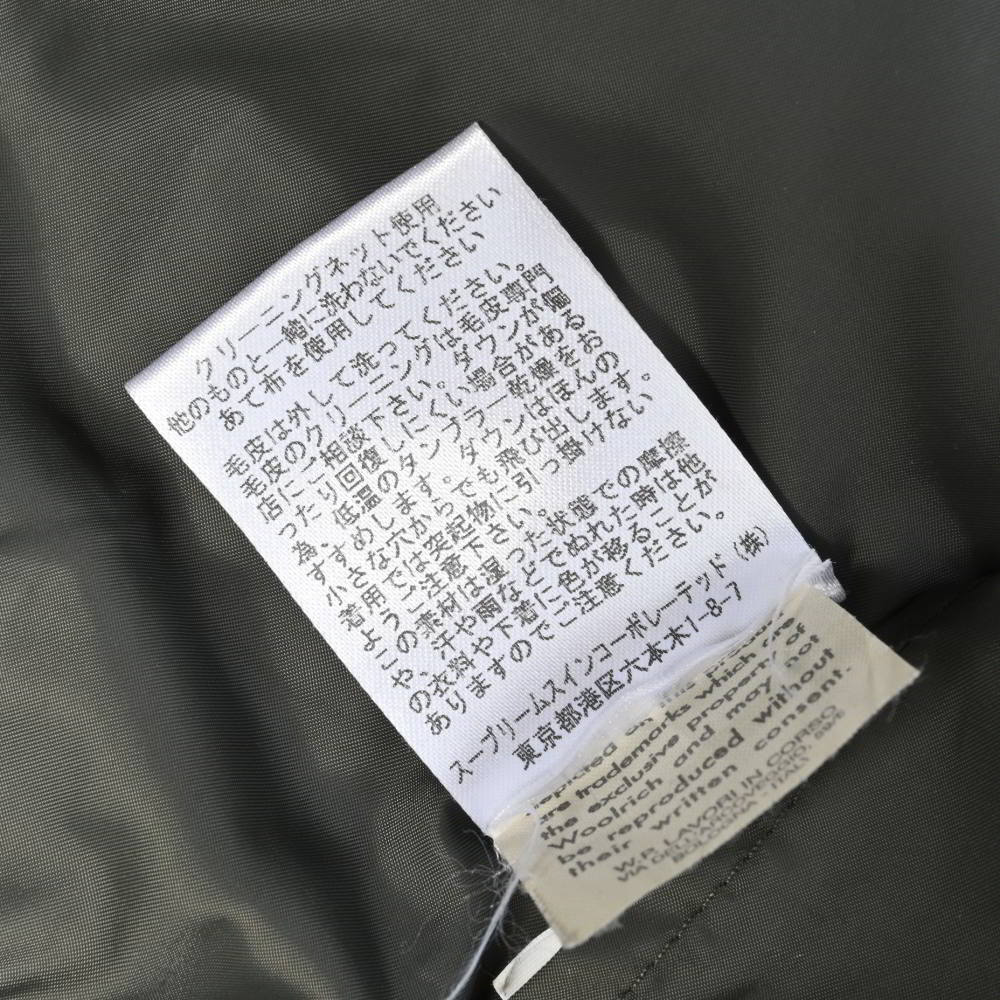 クリーニングネット使用
他のものと一緒に洗わないでください
あて布を使用してください
毛皮は外して洗ってください。
毛皮のクリーニングは毛皮専門
店にご相談下さい。ダウンが偏
ったり回復しにくい場合がある
為、低温のタンブラー乾燥をお
すすめします。ダウンはほんの
小さな穴からでも飛び出します。
着用では突起物に引っ掛けない
ようご注意下さい。
この素材は湿った状態での摩擦
や、汗や雨などでぬれた時は他
の衣料や下着に色が移ることが
ありますのでご注意ください。
スープリームスインコーポレーテッド（株）
東京都港区六本木1-8-7
depicted on this product
are trademarks which are
the exclusive property of
Woolrich and may not
be reproduced without
their written consent.
W.P. LAVORI IN CORSO
VIA DELL'ARCOVEGGIO, 59/5
BOLOGNA - ITALI